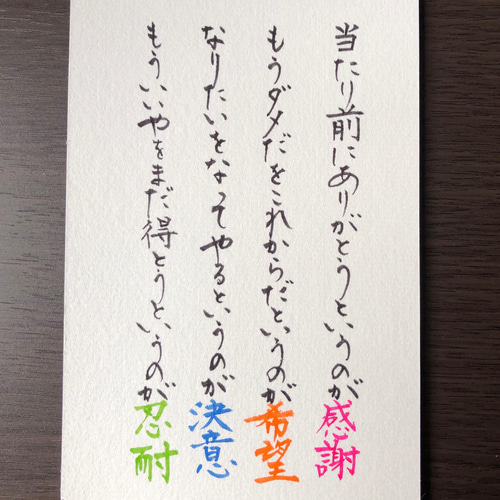 当たり前にありがとうというのが感謝
もうダメだをこれからだというのが希望
なりたいをなってやるというのが決意
もういいやをまだ得とうというのが忍耐